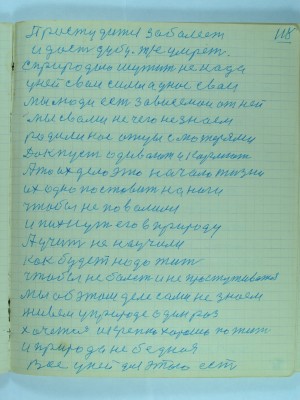 118
Простудится заболеет
и даст дубу. Же умрет.
с природою шутит не нада
у ней свои силы а у нас сваи
мы люди ест зависемои от ней
мы свали нечего не знаем
радили нас отцы с матерями
Вот пуст одевают и кормют
А то их дело это начало жизни
их одно поставит на наги
чтобы не повалили
и пихнут его в природу
А учит не научили
как будет нада жит
чтобы не балет и не простуживатся
Мы об этам дели сами не знаем
живем в природе один раз
хочется и крепко хорошо пажит
и природа не бедная
Все у ней для этаго ест